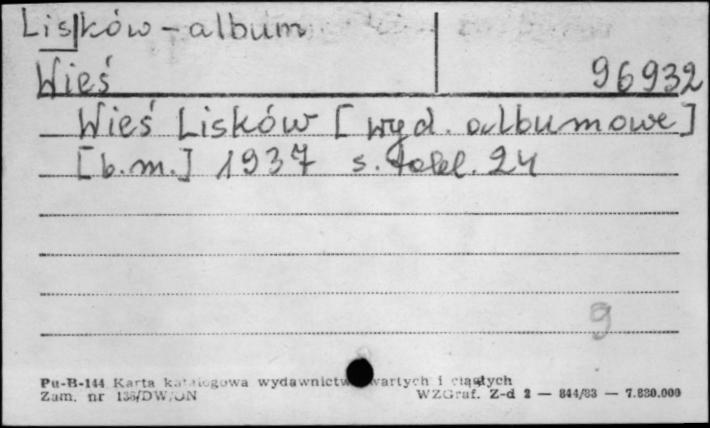 Lisków - album
Wieś 96932
Wieś Lisków [wyd. albumowe]
[b.m.] 1937 s. tabl. 24
9
Pu-B-144 Karta katalogowa wydawnictw zwartych i ciągłych
Zam. nr 136/DW/ON WZGraf. Z-d 2 — 844/83 — 7.830.000